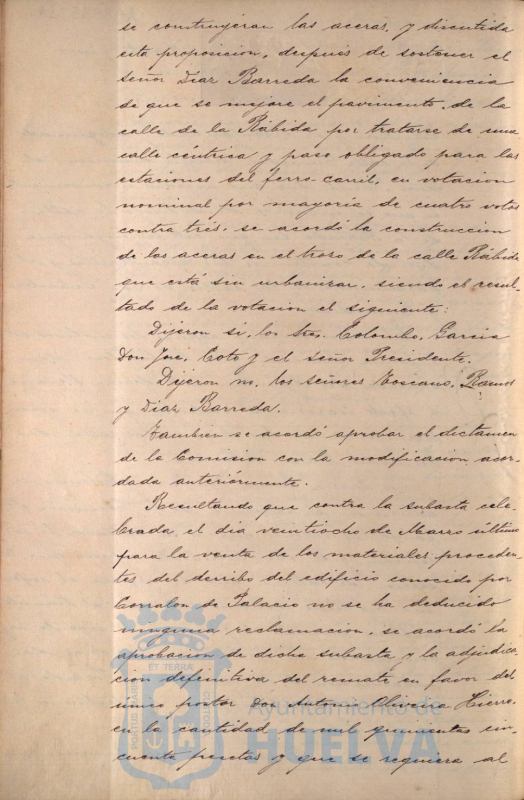 se construyeran las aceras, y discutida
esta proposicion, después de sostener el
señor Diaz Barreda la conveniencia
de que se mejore el pavimento de la
calle de la Rábida por tratarse de una
calle céntrica y paso obligado para las
estaciones del ferro-carril, en votacion
nominal por mayoría de cuatro votos
contra tres, se acordó la construccion
de las aceras en el trozo de la calle Rábida
que está sin urbanizar, siendo el resul-
tado de la votacion el siguiente:
Dijeron si, los Sres. Colombo, Garcia
Don José, Coto y el señor Presidente.
Dijeron no, los señores Toscano, Ramos
y Diaz Barreda.
Tambien se acordó aprobar el dictamen
de la Comision con la modificacion acor-
dada anteriormente.
Resultando que contra la subasta cele-
brada el dia veintiocho de Marzo último
para la venta de los materiales proceden-
tes del derribo del edificio conocido por
Corralon de Palacio no se ha deducido
ninguna reclamacion, se acordó la
aprobacion de dicha subasta y la adjudica-
cion definitiva del remate en favor del
único postor Don Antonio Oliveira Hierro
en la cantidad de mil quinientas cin-
cuenta pesetas y que se requiera al
Ayuntamiento de
HUELVA
PORTUS MARIS
ET TERRÆ
CUSTODIA